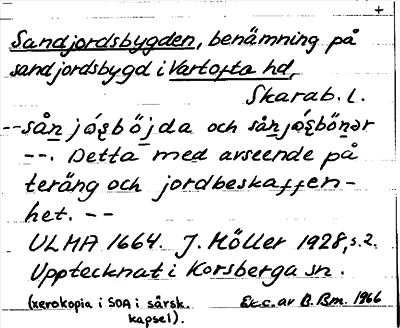 +
Sandjordsbygden, benämning på
sandjordsbygd i Vartofta hd,
Skarab. l.
-- sån jósböjda och sånjósbönər
--. Detta med avseende på
teräng och jordbeskaffen-
het. --
ULMA 1664. J. Möller 1928, s. 2.
Upptecknat i Korsberga sn.
(xerokopia i SOA i särsk. Exc. av B. Bm. 1966
kapsel).